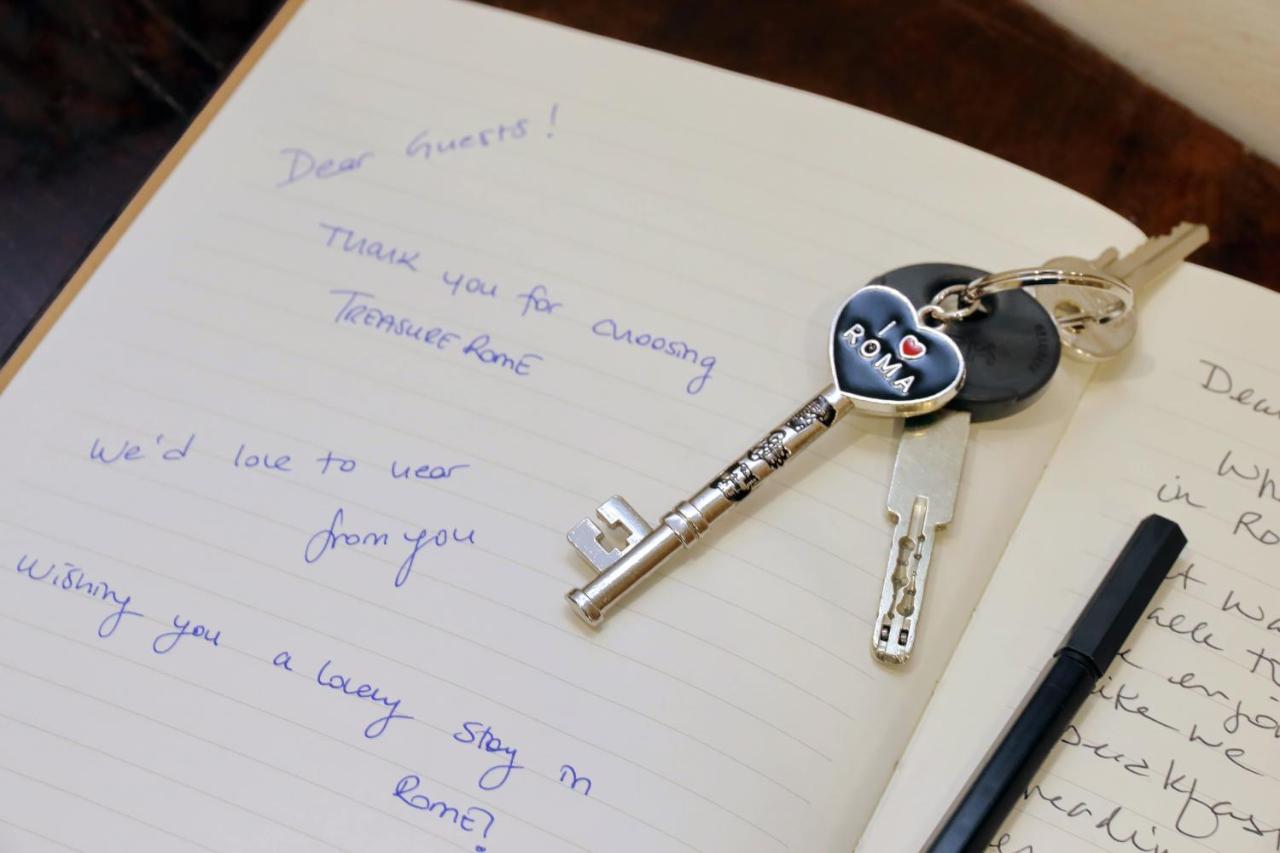 Dear Guests!
Thank you for choosing
TREASURE ROME
We'd love to hear
from you
Wishing you a lovely stay in
Rome!
I ♥
ROMA
Dear
in Ro
like we